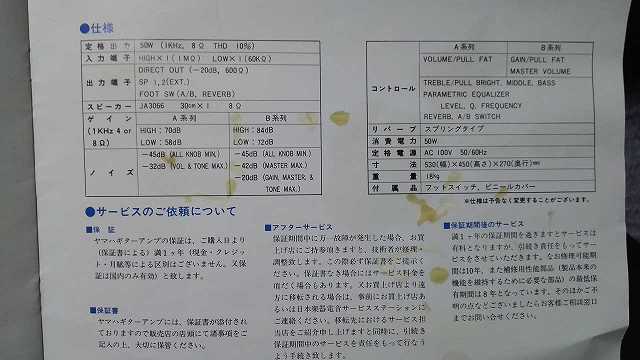 ●仕様
定格出力 50W (1KHz, 8Ω THD 10%)
入力端子 HIGH×1(1MΩ) LOW×1(60KΩ)
出力端子 DIRECT OUT (−20dB, 600Ω)
SP 1,2(EXT.)
FOOT SW(A/B, REVERB)
スピーカー JA3066 30cm×1 8Ω
ゲイン A系列 B系列
(1KHz 4 or 8Ω) HIGH:70dB HIGH:84dB
LOW:58dB LOW:72dB
ノイズ −45dB (ALL KNOB MIN.) −45dB (ALL KNOB MIN.)
−32dB (VOL & TONE MAX.) −42dB (MASTER MAX.)
−20dB (GAIN, MASTER, & TONE MAX.)
A系列 B系列
コントロール VOLUME/PULL FAT GAIN/PULL FAT
MASTER VOLUME
TREBLE/PULL BRIGHT, MIDDLE, BASS
PARAMETRIC EQUALIZER
LEVEL, Q, FREQUENCY
REVERB, A/B SWITCH
リバーブ スプリングタイプ
消費電力 50W
定格電源 AC 100V 50/60Hz
寸法 530(幅)×450(高さ)×270(奥行)mm
重量 18kg
付属品 フットスイッチ, ビニールカバー
※仕様は予告なく変更することがございます。
●サービスのご依頼について
■保証
ヤマハギターアンプの保証は、ご購入日より
(保証書による)満1ヶ年(現金・クレジッ
ト・月賦等による区別はございません。又保
証は国内のみ有効)と致します。
■保証書
ヤマハギターアンプには、保証書が添付され
ておりますので販売店の店頭にて諸事項をご
記入の上、大切に保管ください。
■アフターサービス
保証期間中に万一故障が発生した場合、お買
上げ店にご持参頂きますと、技術者が修理・
調整致します。この際必ず保証書をご提示く
ださい。保証書なき場合にはサービス料金を
頂だく場合もあります。又お買上げ店より遠
方に移転される場合は、事前にお買上げ店あ
るいは日本楽器電音サービスステーションに
ご連絡ください。移転先におけるサービス担
当店をご紹介申し上げますと同時に、引続き
保証期間中のサービスを責任をもって行なう
よう手続き致します。
■保証期間後のサービス
満1ヶ年の保証期間を過ぎますとサービスは
有料となりますが、引続き責任をもってサー
ビスをさせていただきます。なお修理可能期
間は10年、また補修用性能部品(製品本来の
機能を維持するために必要な部品)の最低保
有期間は8年となっています。そのほかご不
明の点などございましたらお客様ご相談窓口
までお問い合せください。